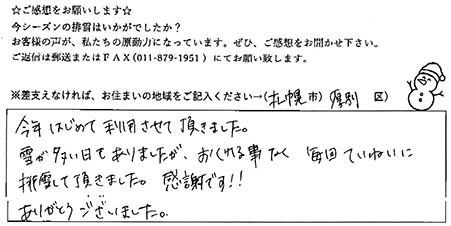 ☆ご感想をお願いします☆
今シーズンの排雪はいかがでしたか？
お客様の声が、私たちの原動力になっています。ぜひ、ご感想をお聞かせ下さい。
ご返信は郵送またはＦＡＸ（011-879-1951）にてお願い致します。
※差支えなければ、お住まいの地域をご記入ください→（札幌市）厚別 区）
今年はじめて利用させて頂きました。
雪が多い日もありましたが、おくれる事なく 毎回ていねいに
排雪して頂きました。 感謝です!!
ありがとうございました。